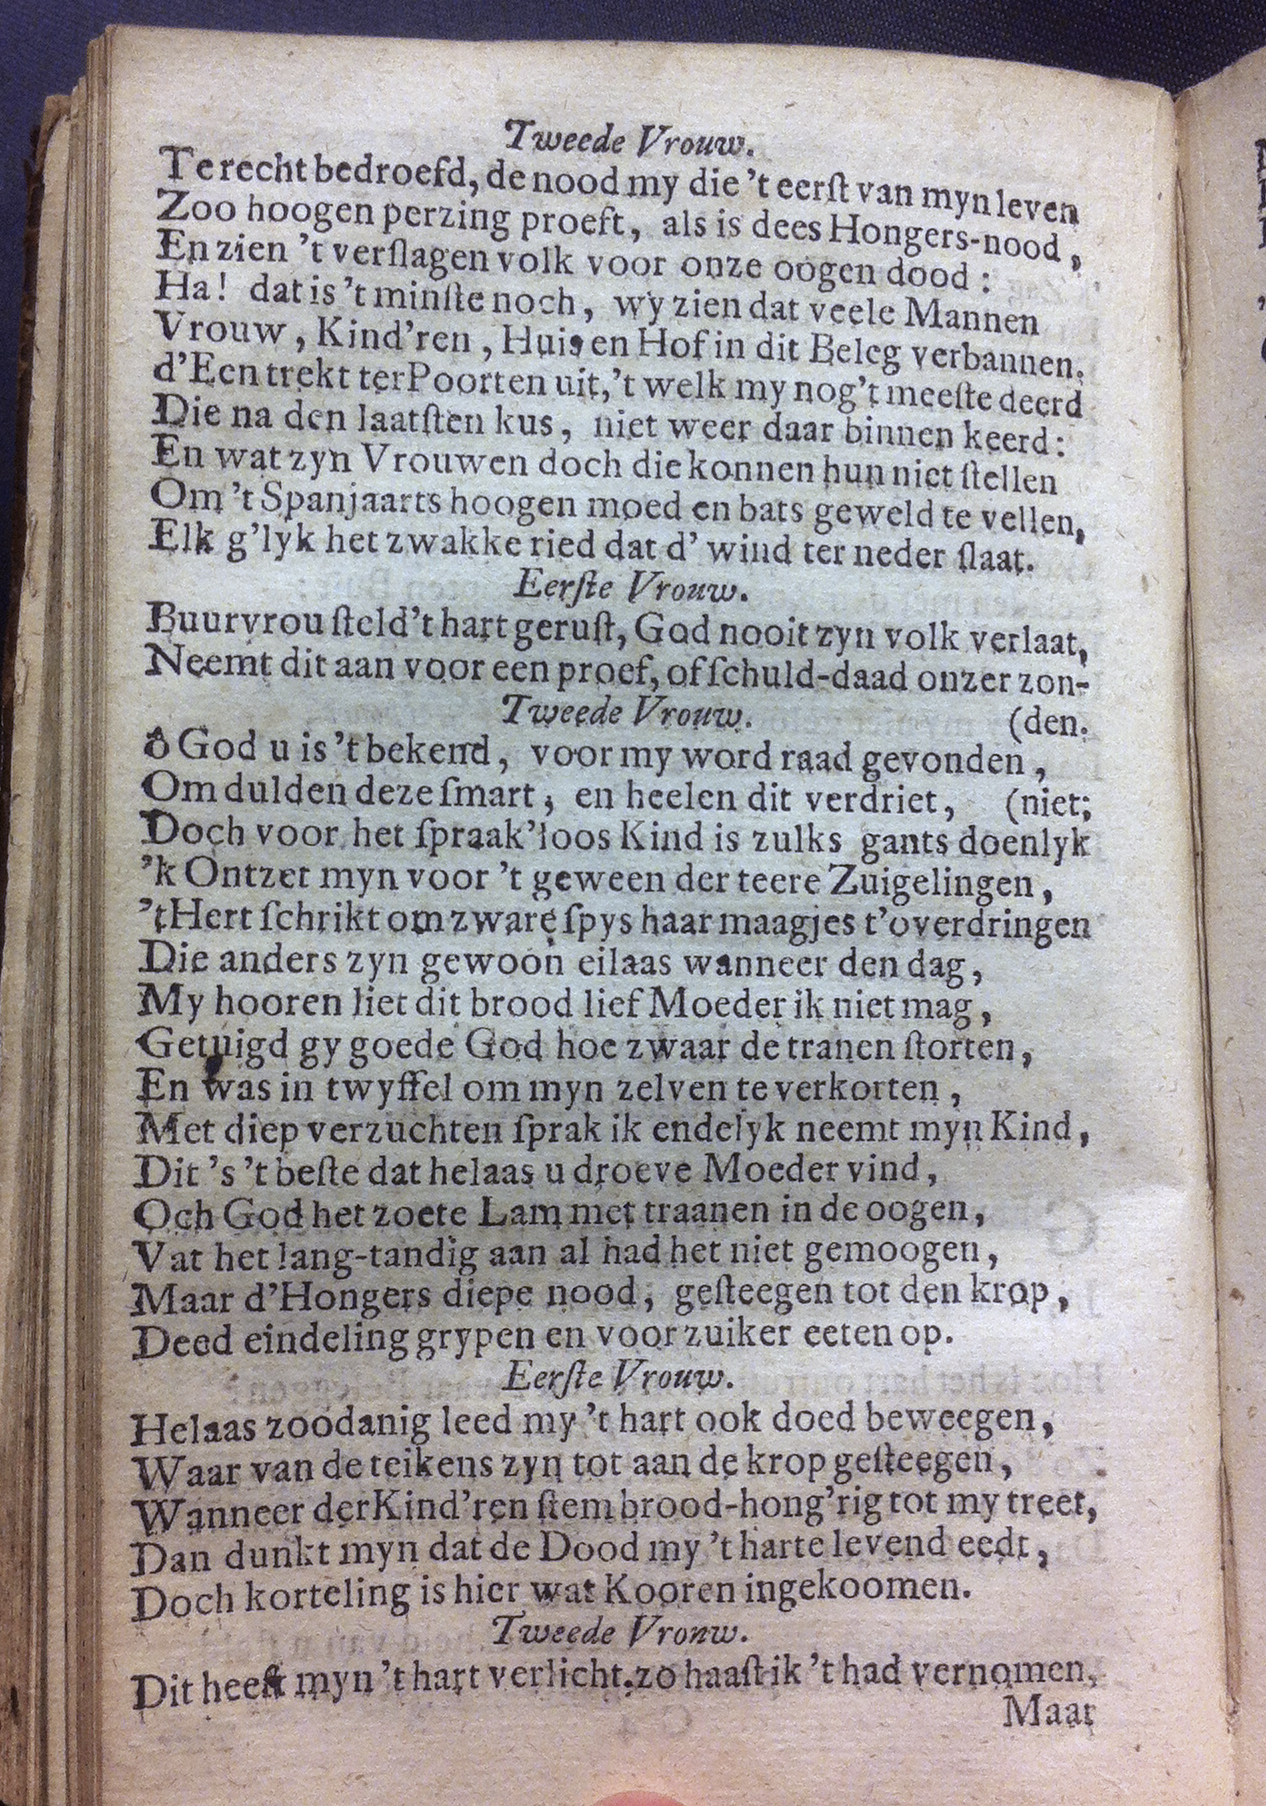 Tweede Vrouw.
Te recht bedroefd, de nood my die 't eerſt van myn leven
Zoo hoogen perzing proeft, als is dees Hongers-nood,
En zien 't verſlagen volk voor onze oogen dood:
Ha! dat is 't minſte noch, wy zien dat veele Mannen
Vrouw, Kind'ren, Huis en Hof in dit Beleg verbannen.
d'Een trekt ter Poorten uit, 't welk my nog 't meeſte deerd
Die na den laatſten kus, niet weer daar binnen keerd:
En wat zyn Vrouwen doch die konnen hun niet ſtellen
Om 't Spanjaarts hoogen moed en bats geweld te vellen,
Elk g'lyk het zwakke ried dat d' wind ter neder ſlaat.
Eerſte Vrouw.
Buurvrou ſteld 't hart geruſt, God nooit zyn volk verlaat,
Neemt dit aan voor een proef, of ſchuld-daad onzer zon-
Tweede Vrouw. (den.
ô God u is 't bekend, voor my word raad gevonden,
Om dulden deze ſmart, en heelen dit verdriet, (niet;
Doch voor het ſpraak'loos Kind is zulks gants doenlyk
'k Ontzet myn voor 't geween der teere Zuigelingen,
't Hert ſchrikt om zware ſpys haar maagjes t'overdringen
Die anders zyn gewoon eilaas wanneer den dag,
My hooren liet dit brood lief Moeder ik niet mag,
Getuigd gy goede God hoe zwaar de tranen ſtorten,
En was in twyffel om myn zelven te verkorten,
Met diep verzuchten ſprak ik endelyk neemt myn Kind,
Dit 's 't beſte dat helaas u droeve Moeder vind,
Och God het zoete Lam met traanen in de oogen,
Vat het lang-tandig aan al had het niet gemoogen,
Maar d'Hongers diepe nood, geſteegen tot den krop,
Deed eindeling grypen en voor zuiker eeten op.
Eerſte Vrouw.
Helaas zoodanig leed my 't hart ook doed beweegen,
Waar van de teikens zyn tot aan de krop geſteegen,
Wanneer der Kind'ren ſtem brood-hong'rig tot my treet,
Dan dunkt myn dat de Dood my 't harte levend eedt,
Doch korteling is hier wat Kooren ingekoomen.
Tweede Vronw.
Dit heeft myn 't hart verlicht. zo haaſt ik 't had vernomen,
Maar